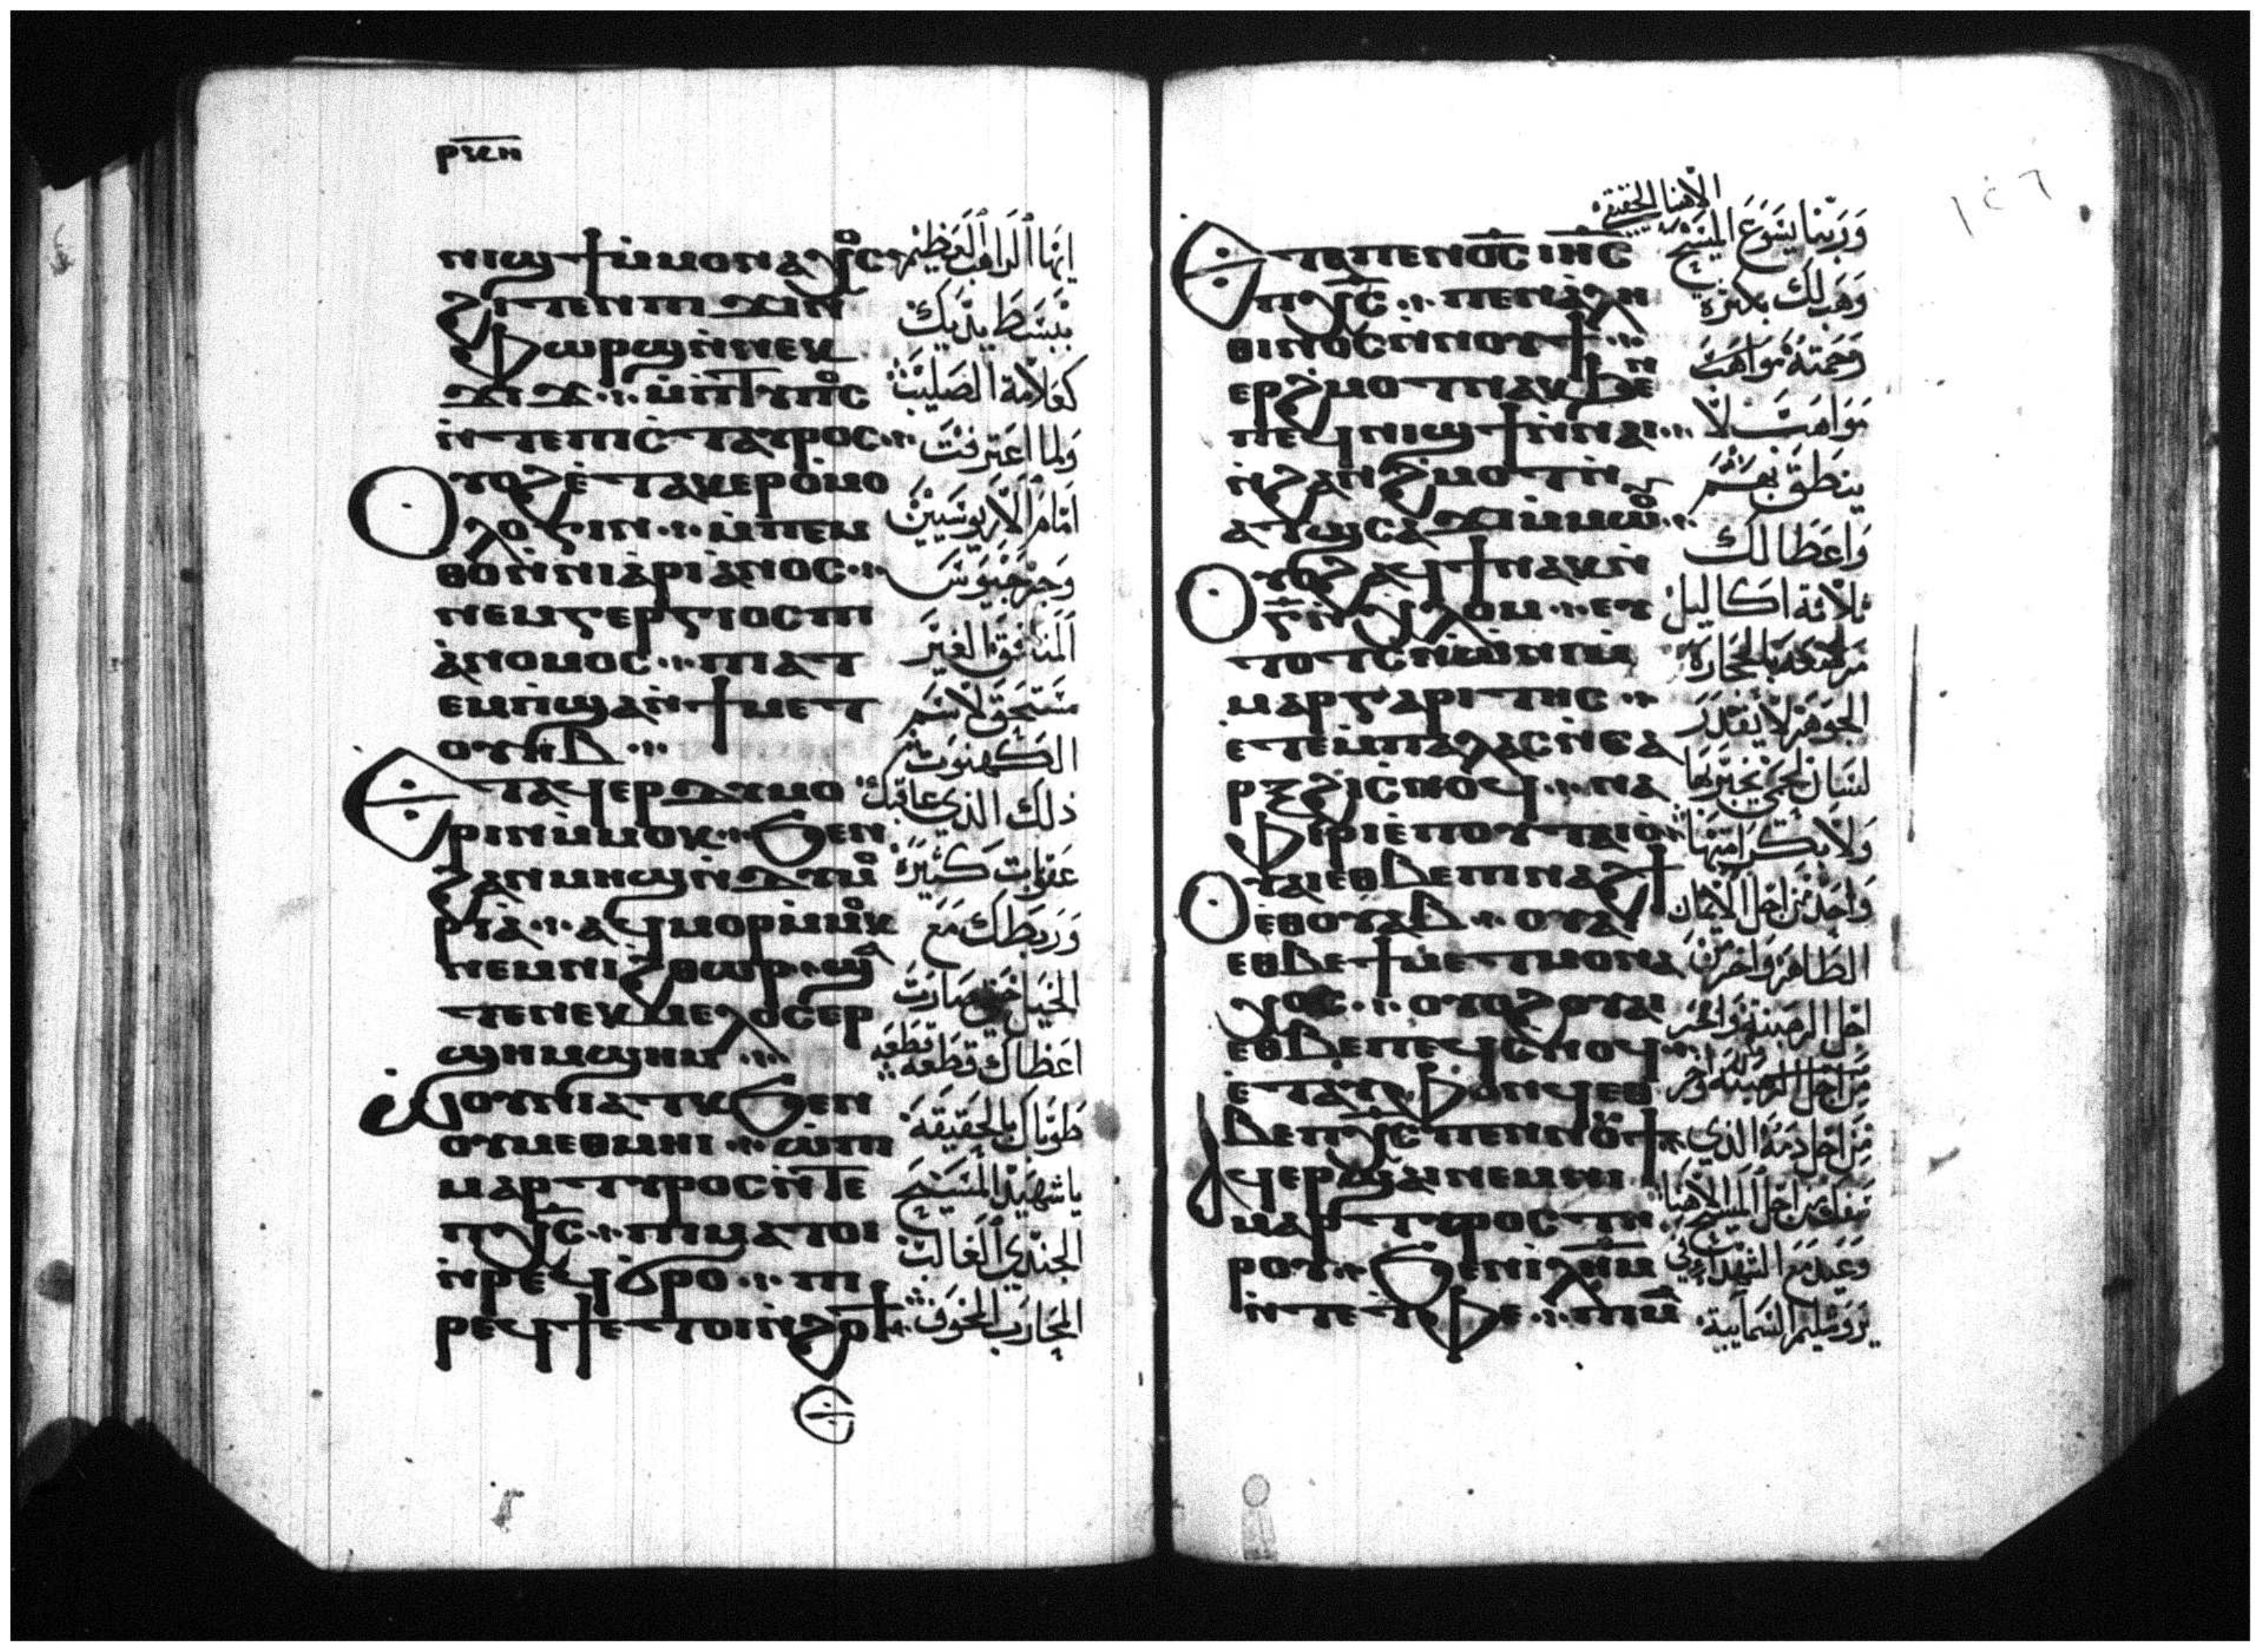 ⲛⲓϣϯ ⲙ̀ⲙⲟⲛⲁⲭⲟⲥ
ϩⲓⲧⲉⲛ ⲡⲓϫⲓⲛ
ⲫⲱⲣϣ ⲛ̀ⲛⲉⲕ
ϫⲓϫ ⲙ̀ⲡ̀ⲧⲩⲡⲟⲥ
ⲛ̀ⲧⲉ ⲡⲓⲥ̀ⲧⲁⲩⲣⲟⲥ
Ⲟⲩⲟϩ ⲉ̀ⲧⲁⲕⲉⲣⲟ̀ⲙⲟ
ⲗⲟⲅⲓⲛ ⲙ̀ⲡⲉⲙ
ⲑⲟ ⲛ̀ⲛⲓⲁ̀ⲣⲓⲁ̀ⲛⲟⲥ
ⲛⲉⲙ ⲅⲉⲣⲅⲓⲟⲥ ⲡⲓ
ⲁ̀ⲛⲟⲙⲟⲥ ⲡⲓⲁⲧ
ⲉⲙⲡ̀ϣⲁ ⲛ̀ϯⲙⲉⲧ
ⲟⲩⲏⲃ
Ⲉⲧⲁϥⲉⲣϫⲩⲙⲟ
ⲣⲓⲛ ⲙ̀ⲙⲟⲕ ϧⲉⲛ
ϩⲁⲛⲙⲏϣ ⲛ̀ϫⲩⲙⲟ
ⲣⲓⲁ̀ ⲁϥⲙⲟⲣ ⲙ̀ⲙⲟⲕ
ⲛⲉⲙ ⲛⲓϩⲑⲱⲣ ϣⲁ
ⲧⲉ ⲛⲉⲕⲙⲉⲗⲟⲥ ⲉⲣ
ϣⲏⲙ ϣⲏⲙ
Ⲱⲟⲩⲛⲓⲁⲧⲕ ϧⲉⲛ
ⲟⲩⲙⲉⲑⲙⲏⲓ ⲱ̀ ⲡⲓ
ⲙⲁⲣⲧⲩⲣⲟⲥ ⲛ̀ⲧⲉ
ⲡⲭ̅ⲥ̅ ⲡⲓⲙⲁⲧⲟⲓ
ⲛ̀ⲣⲉϥϭⲣⲟ ⲡⲓ
ⲣⲉϥϯ ⲉⲧⲟⲓ ⲛ̀ϩⲟϯ
انها الراهب العظيم
ببسط يديك
كعلامة الصليب
ولما اعترفت
امام الاريوسيين
وجرجيوس
المنافق الغير
مستحق لاسم
الكهنوت
ذلك الذي عاقبك
عقوبات كثيرة
وربطك مع
الخيل حتى صارت
اعظاك قطعه قطعه
طوباك بالحقيقة
يا شهيد المسيح
الجندي الغالب
المحارب المخوف
١٤٦
Ⲉⲧⲁ ⲡⲉⲛⲟ̅ⲥ̅ ⲓⲏ̅ⲥ̅
ⲡⲭ̅ⲥ̅ ⲡⲉⲛⲁ̀ⲗⲏ
ⲑⲓⲛⲟⲥ ⲛ̀ⲛⲟⲩϯ
ⲉⲣϩ̀ⲙⲟⲧ ⲛⲁⲕ ϧⲉⲛ
ⲡⲉϥⲛⲓϣϯ ⲛ̀ⲛⲁⲓ
ⲛ̀ϩⲁⲛϩ̀ⲙⲟⲧ ⲛ̀
ⲁⲧⲥⲁϫⲓ ⲙ̀ⲙⲱⲟⲩ
Ⲟⲩⲟϩ ⲁϥϯ ⲛⲁⲕ ⲛ̀
ⲅ̅ ⲛ̀ⲭ̀ⲗⲟⲙ ⲉⲩ
ⲧⲟⲧⲥ ⲛ̀ⲱ̀ⲛⲓ ⲙ̀
ⲙⲁⲣⲅⲁⲣⲓⲧⲏⲥ
ⲉⲧⲉ ⲙ̀ⲡⲁⲗⲁⲥ ⲛ̀ⲥⲁ
ⲣⲝ ϩⲓ ⲥ̀ⲛⲟϥ ⲛⲁ
ⲫ̀ⲓⲣⲓ ⲉ̀ⲡⲟⲩⲧⲁⲓⲟ̀
Ⲟⲩⲁⲓ ⲉⲑⲃⲉ ⲡⲓⲛⲁϩϯ
ⲉⲑⲟⲩⲁⲃ ⲟⲩⲁⲓ
ⲉⲑⲃⲉ ϯⲙⲉⲧⲙⲟⲛⲁ
ⲭⲟⲥ ⲟⲩⲟϩ ⲟⲩⲁⲓ
ⲉⲑⲃⲉ ⲡⲉϥⲥ̀ⲛⲟϥ
ⲉ̀ⲧⲁⲩⲫⲟⲛϥ ⲉⲑ
ⲃⲉ ⲡⲭ̅ⲥ̅ ⲡⲉⲛⲛⲟⲩϯ
Ⲁϥⲉⲣϣⲁⲓ ⲛⲉⲙ ⲛⲓ
ⲙⲁⲣⲧⲩⲣⲟⲥ ⲧⲏ
ⲣⲟⲩ ϧⲉⲛ ⲓⲗ̅ⲏ̅ⲙ̅
ⲛ̀ⲧⲉ ⲧ̀ⲫⲉ
الاهنا الحقيقي
وربنا يسوع المسيح
وهب لك بكثرة
رحمته مواهب
مواهب لا
ينطق بهم
واعطا لك
ثلاثة اكاليل
مرصعه بالحجارة
الجوهر لا يقدر
لسان لحمي يخبر بها
ولا بكرامتها
واحد من اجل الامان
الطاهر واخر من
اجل الرهبنة واخر
من اجل دمه الذي
سفك من اجل المسيح الاهنا
وعيد مع الشهداء في
يروشليم السمايية